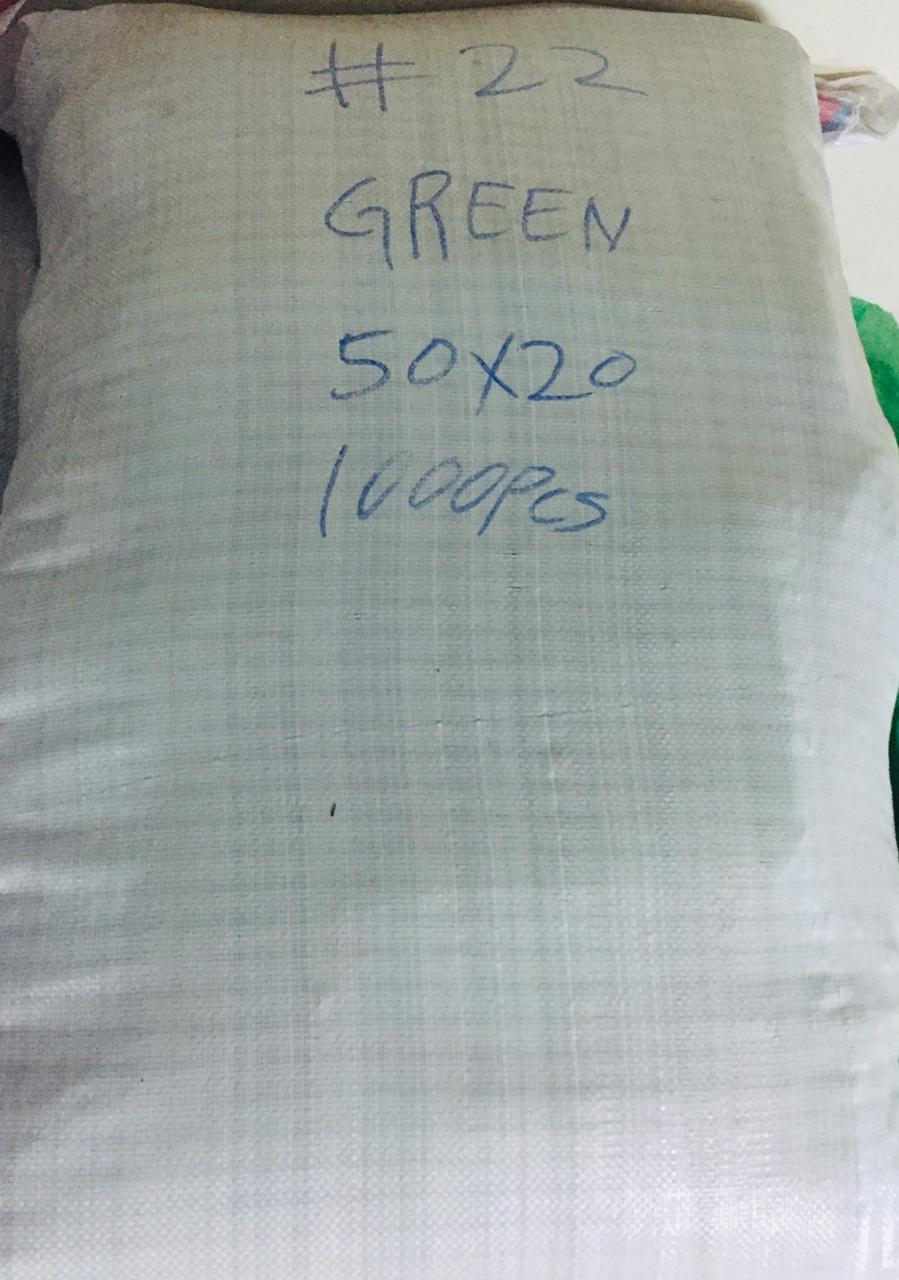 # 22
GREEN
50X20
1000PCS